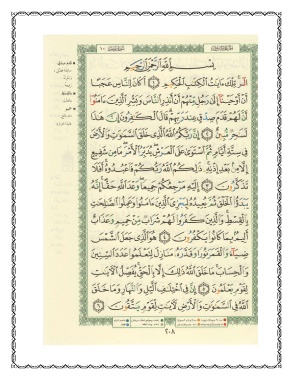 بِسْمِ اللَّهِ الرَّحْمَٰنِ الرَّحِيمِ
الٓر تِلْكَ ءَايَٰتُ الْكِتَٰبِ الْحَكِيمِ ١ أَكَانَ لِلنَّاسِ عَجَبًا
أَنْ أَوْحَيْنَا إِلَىٰ رَجُلٍ مِّنْهُمْ أَنْ أَنذِرِ النَّاسَ وَبَشِّرِ الَّذِينَ ءَامَنُوا
أَنَّ لَهُمْ قَدَمَ صِدْقٍ عِندَ رَبِّهِمْ قَالَ الْكَٰفِرُونَ إِنَّ هَٰذَا
لَسَٰحِرٌ مُّبِينٌ ٢ إِنَّ رَبَّكُمُ اللَّهُ الَّذِي خَلَقَ السَّمَٰوَٰتِ وَالْأَرْضَ
فِي سِتَّةِ أَيَّامٍ ثُمَّ اسْتَوَىٰ عَلَى الْعَرْشِ يُدَبِّرُ الْأَمْرَ مَا مِن شَفِيعٍ
إِلَّا مِن بَعْدِ إِذْنِهِ ذَٰلِكُمُ اللَّهُ رَبُّكُمْ فَاعْبُدُوهُ أَفَلَا
تَذَكَّرُونَ ٣ إِلَيْهِ مَرْجِعُكُمْ جَمِيعًا وَعْدَ اللَّهِ حَقًّا إِنَّهُ
يَبْدَؤُا الْخَلْقَ ثُمَّ يُعِيدُهُ لِيَجْزِيَ الَّذِينَ ءَامَنُوا وَعَمِلُوا الصَّٰلِحَٰتِ
بِالْقِسْطِ وَالَّذِينَ كَفَرُوا لَهُمْ شَرَابٌ مِّنْ حَمِيمٍ وَعَذَابٌ
أَلِيمٌ بِمَا كَانُوا يَكْفُرُونَ ٤ هُوَ الَّذِي جَعَلَ الشَّمْسَ
ضِيَاءً وَالْقَمَرَ نُورًا وَقَدَّرَهُ مَنَازِلَ لِتَعْلَمُوا عَدَدَ السِّنِينَ
وَالْحِسَابَ مَا خَلَقَ اللَّهُ ذَٰلِكَ إِلَّا بِالْحَقِّ يُفَصِّلُ الْآيَٰتِ
لِقَوْمٍ يَعْلَمُونَ ٥ إِنَّ فِي اخْتِلَٰفِ الَّيْلِ وَالنَّهَارِ وَمَا خَلَقَ
اللَّهُ فِي السَّمَٰوَٰتِ وَالْأَرْضِ لَآيَٰتٍ لِّقَوْمٍ يَتَّقُونَ ٦
٢٠٨